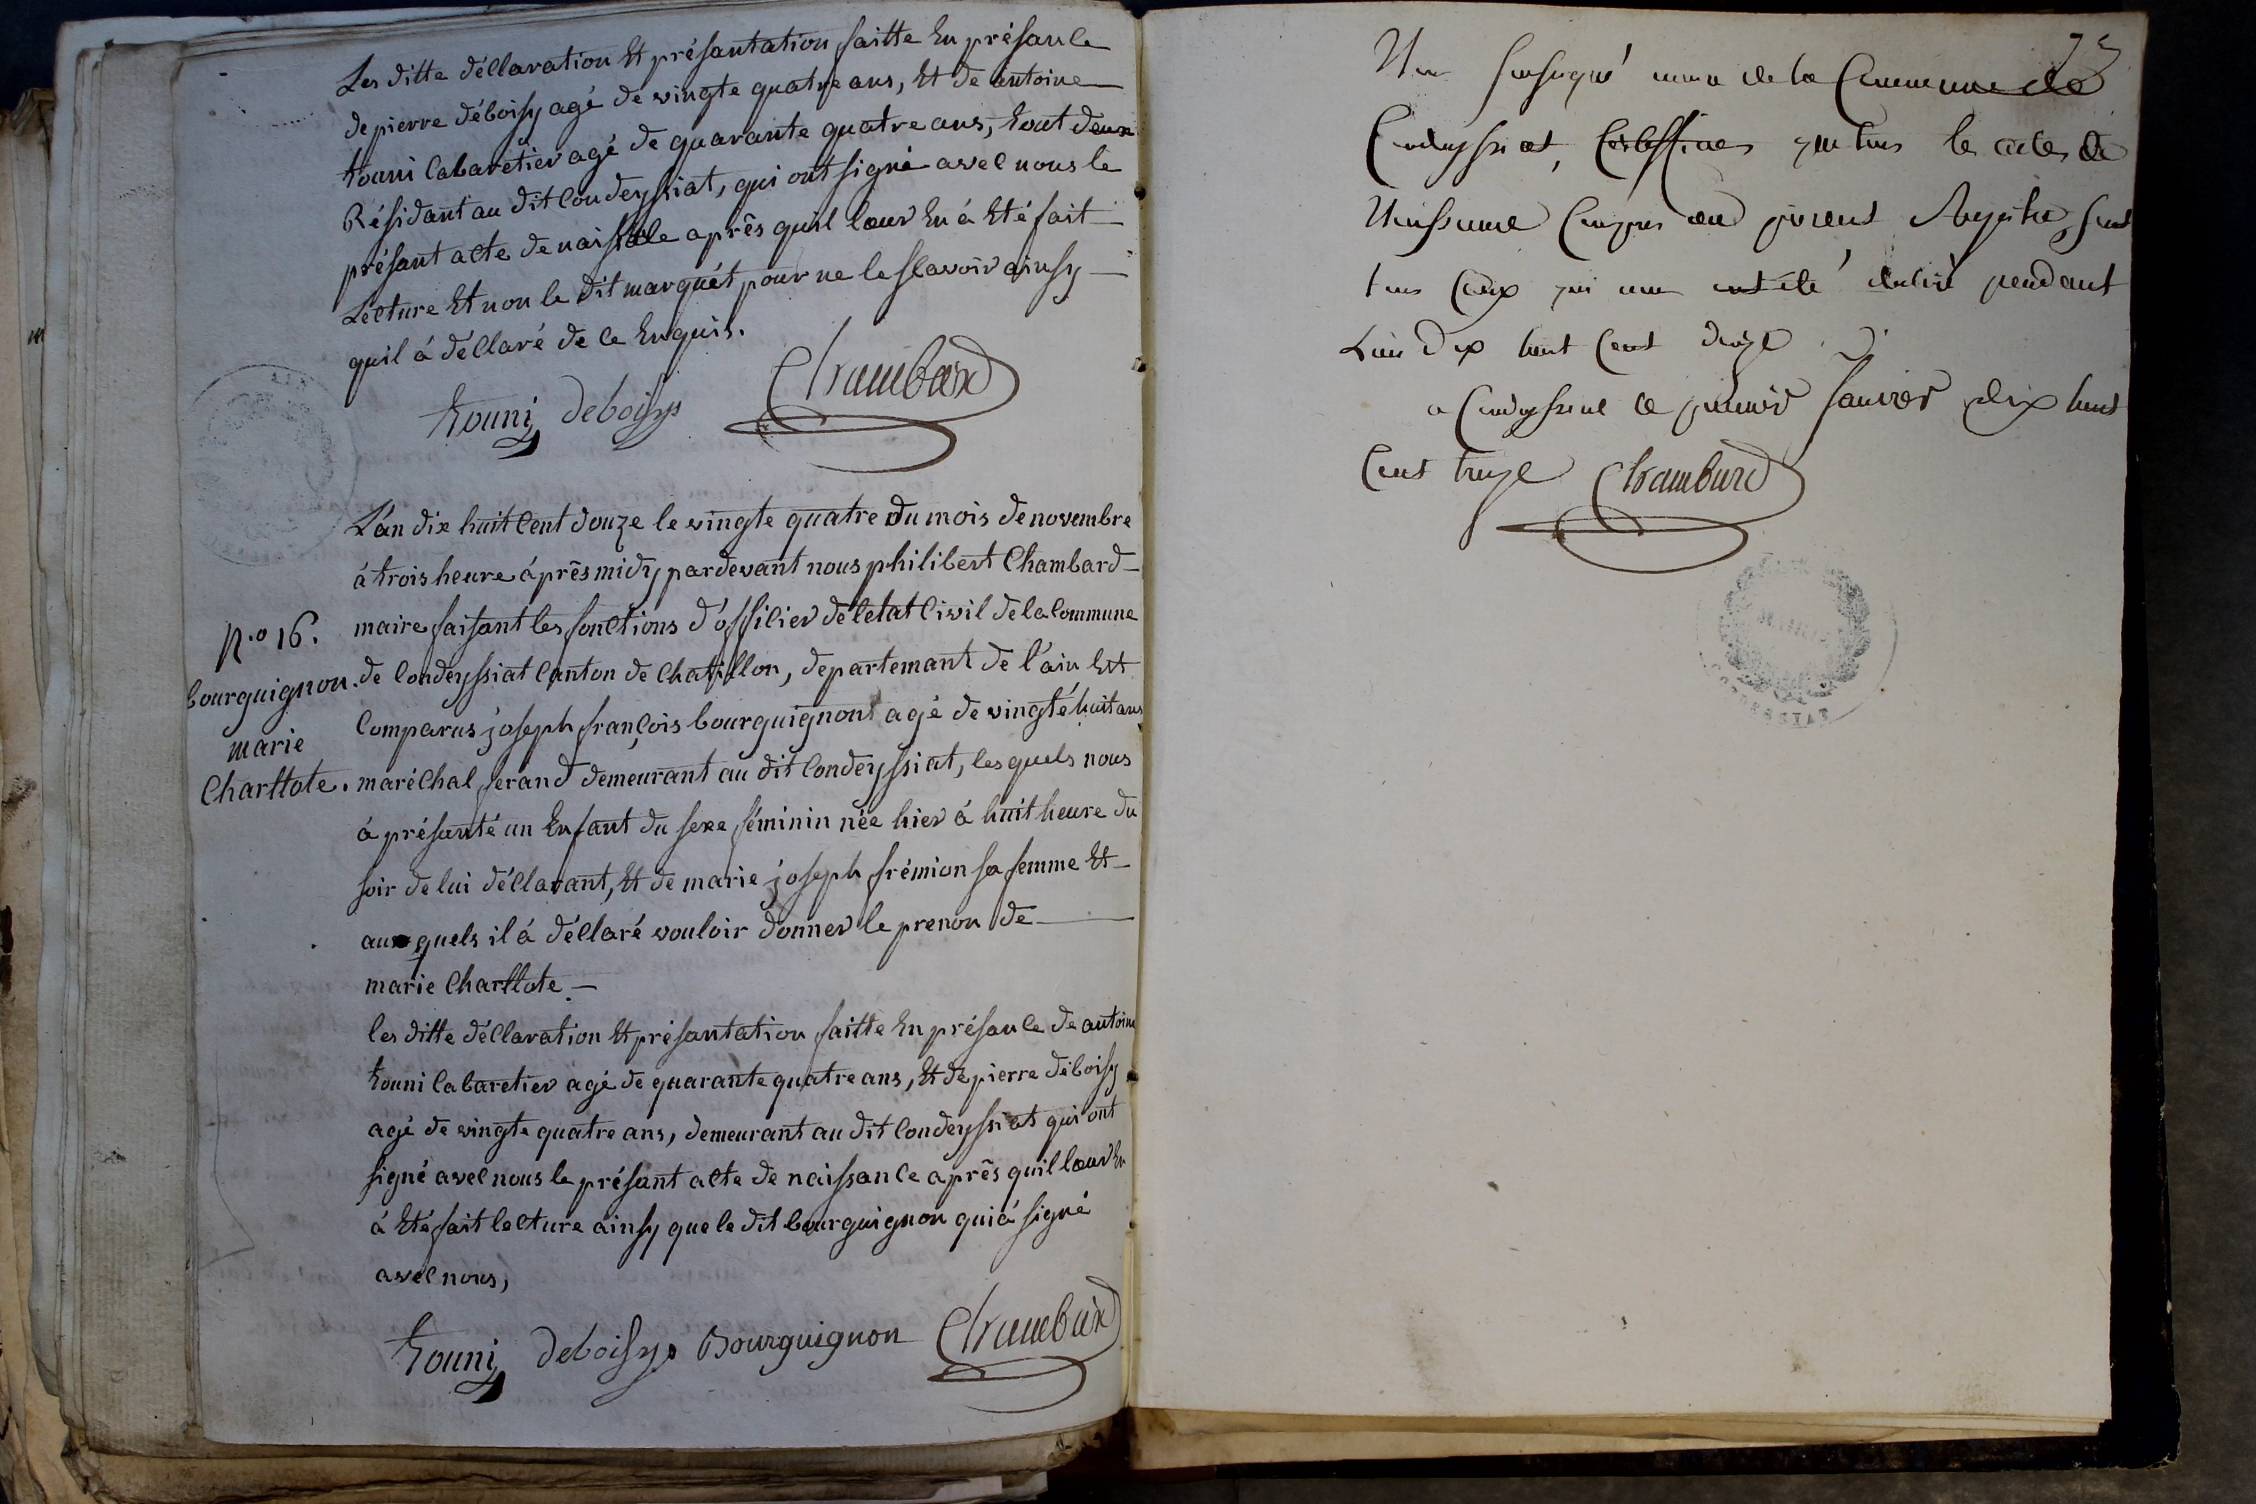 Les ditte déclaration Et présantation faitte En présance
de pierre déboisy agé de vingte quatre ans, Et de antoine
touni Cabaretier agé de quarante quatre ans, tout deux
Résidant au dit Condeyssiat, qui ont signé avec nous le
présant acte de naissance aprês quil leur En á Eté fait
Lecture Et non le dit marquét pour ne le sçavoir ainsy
quil á déclaré de ce Enquis.
touni deboisy Chambard
L'an dix huit Cent douze le vingte quatre du mois de novembre
á trois heure áprês midy pardevant nous philibert Chambard
maire faisant les fonctions d'officier de létat Civil de la Commune
de Condeyssiat Canton de Chatillon, departemant de l'ain Est
Comparus joseph françois bourguignont agé de vingté huit ans
maréchal ferand demeurant au dit Condeyssiat, les quels nous
á présanté un Enfant du sexe féminin née hier á huit heure du
soir de lui déclarant, Et de marie joseph frémion sa femme Et
aux quels il á déclaré vouloir donner le prenon de
marie Charltote
les ditte déclaration Et présantation faitte En présance de antoine
touni Cabaretier agé de quarante quatre ans, Et de pierre déboisy
agé de vingte quatre ans, demeurant au dit Condeyssiat qui ont
signé avec nous le présant acte de naissance aprês quil leur En
á Eté fait lecture ainsy que le dit bourguignon qui á signé
avec nous,
touni deboisy Bourguignon Chambard
N.o 16.
bourguignon.
marie
Charltote.
73
Nous soussigné maire de la Commune de
Condeyssiat, Certifions que tous les actes de
Naissance Compris au présent Registre, sont
tous Ceux qui nous ont été déclaré pendant
Lan dix huit Cent douze
a Condeyssiat ce premier Janvier dix huit
Cent treize Chambard